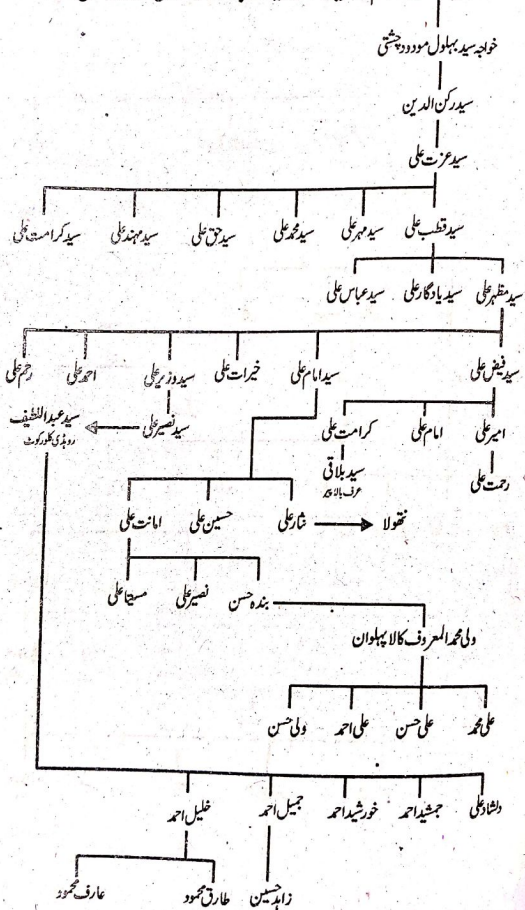 خواجہ سید بہلول مودود چشتی
سید رکن الدین
سید عزت علی
سید قطب علی سید مہر علی سید محمد علی سید حق علی سید مہند علی سید کرامت علی
سید مظہر علی سید یادگار علی سید عباس علی
سید فیض علی سید امام علی خیرات علی سید وزیر علی احمد علی رحم علی
امیر علی امام علی کرامت علی سید نصیر علی سید عبدالطیف
روہڈی کلورکوٹ
رحمت علی سید بلاقی
عرف بالا پیر
نتھولا نثار علی حسین علی امانت علی
بندہ حسن نصیر علی مسیتا علی
ولی محمد المعروف کالا پہلوان
علی محمد علی حسن علی احمد ولی حسن
دلشاد علی جمشید احمد خورشید احمد جمیل احمد خلیل احمد
زاہد حسین طارق محمود عارف محمود